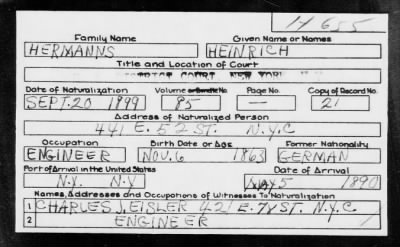 H 655
Family Name Given Name or Names
HERMANNS HEINRICH
Title and Location of Court
DISTRICT COURT, NEW YORK
Date of Naturalization Volume or Bundle No. Page No. Copy of Record No.
SEPT. 20 1899 85 — 21
Address of Naturalized Person
441 E. 52 ST. N.Y.C
Occupation Birth Date or Age Former Nationality
ENGINEER NOV. 6 1863 GERMAN
Port of Arrival in the United States Date of Arrival
N.Y. N.Y MAY 5 1890
Names, Addresses and Occupations of Witnesses To Naturalization
1 CHARLES J. EISLER 421 E. 74 ST. N.Y.C
2 ENGINEER